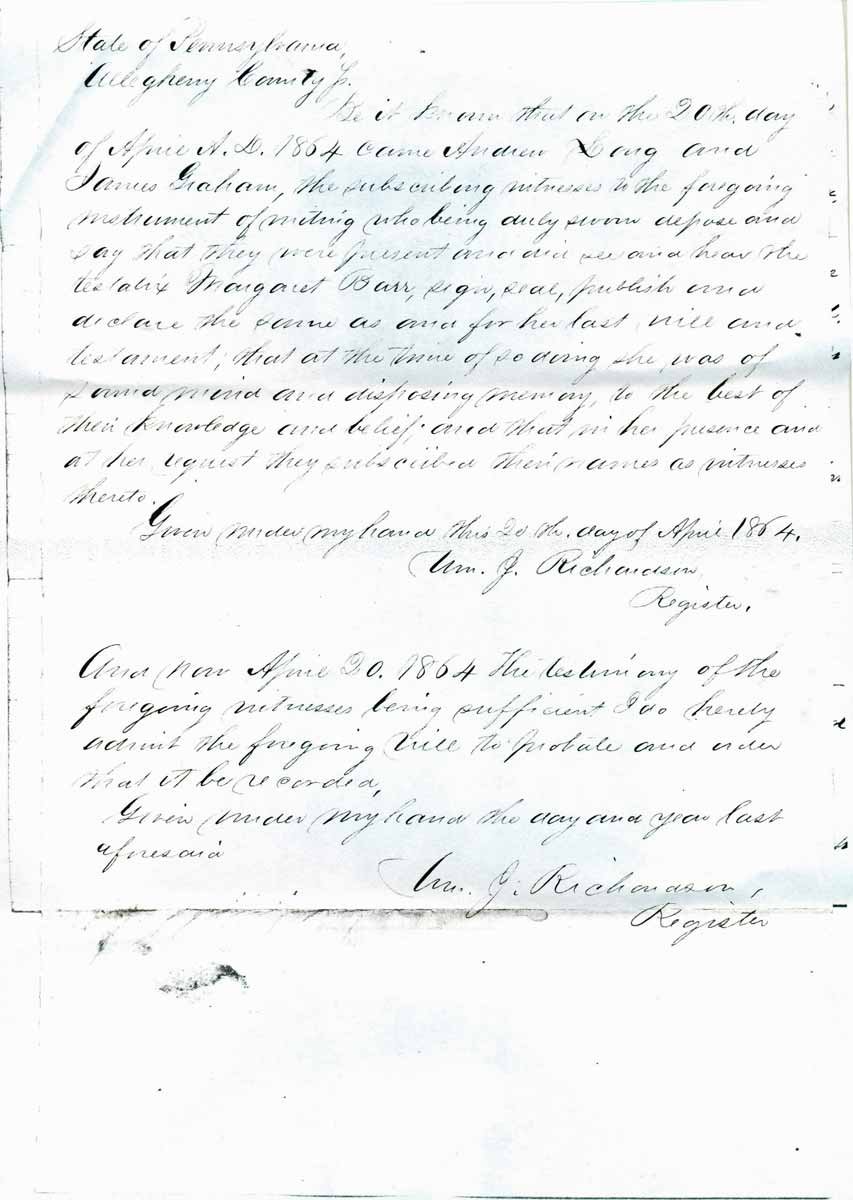 State of Pennsylvania,
Allegheny County ss.
Be it known that on the 20th. day
of April A.D. 1864 came Andrew Long and
James Graham, the subscribing witnesses to the foregoing
instrument of writing who being duly sworn depose and
say that they were present and did see and hear the
testatrix Margaret Barr, sign, seal, publish and
declare the same as and for her last will and
testament; that at the time of so doing she was of
sound mind and disposing memory, to the best of
their knowledge and belief; and that in her presence and
at her request they subscribed their names as witnesses
thereto.
Given under my hand this 20th. day of April 1864.
Wm. J. Richardson
Register.
And now April 20. 1864 the testimony of the
foregoing witnesses being sufficient I do hereby
admit the foregoing will to probate and order
that it be recorded,
Given under my hand the day and year last
aforesaid
Wm. J. Richardson,
Register